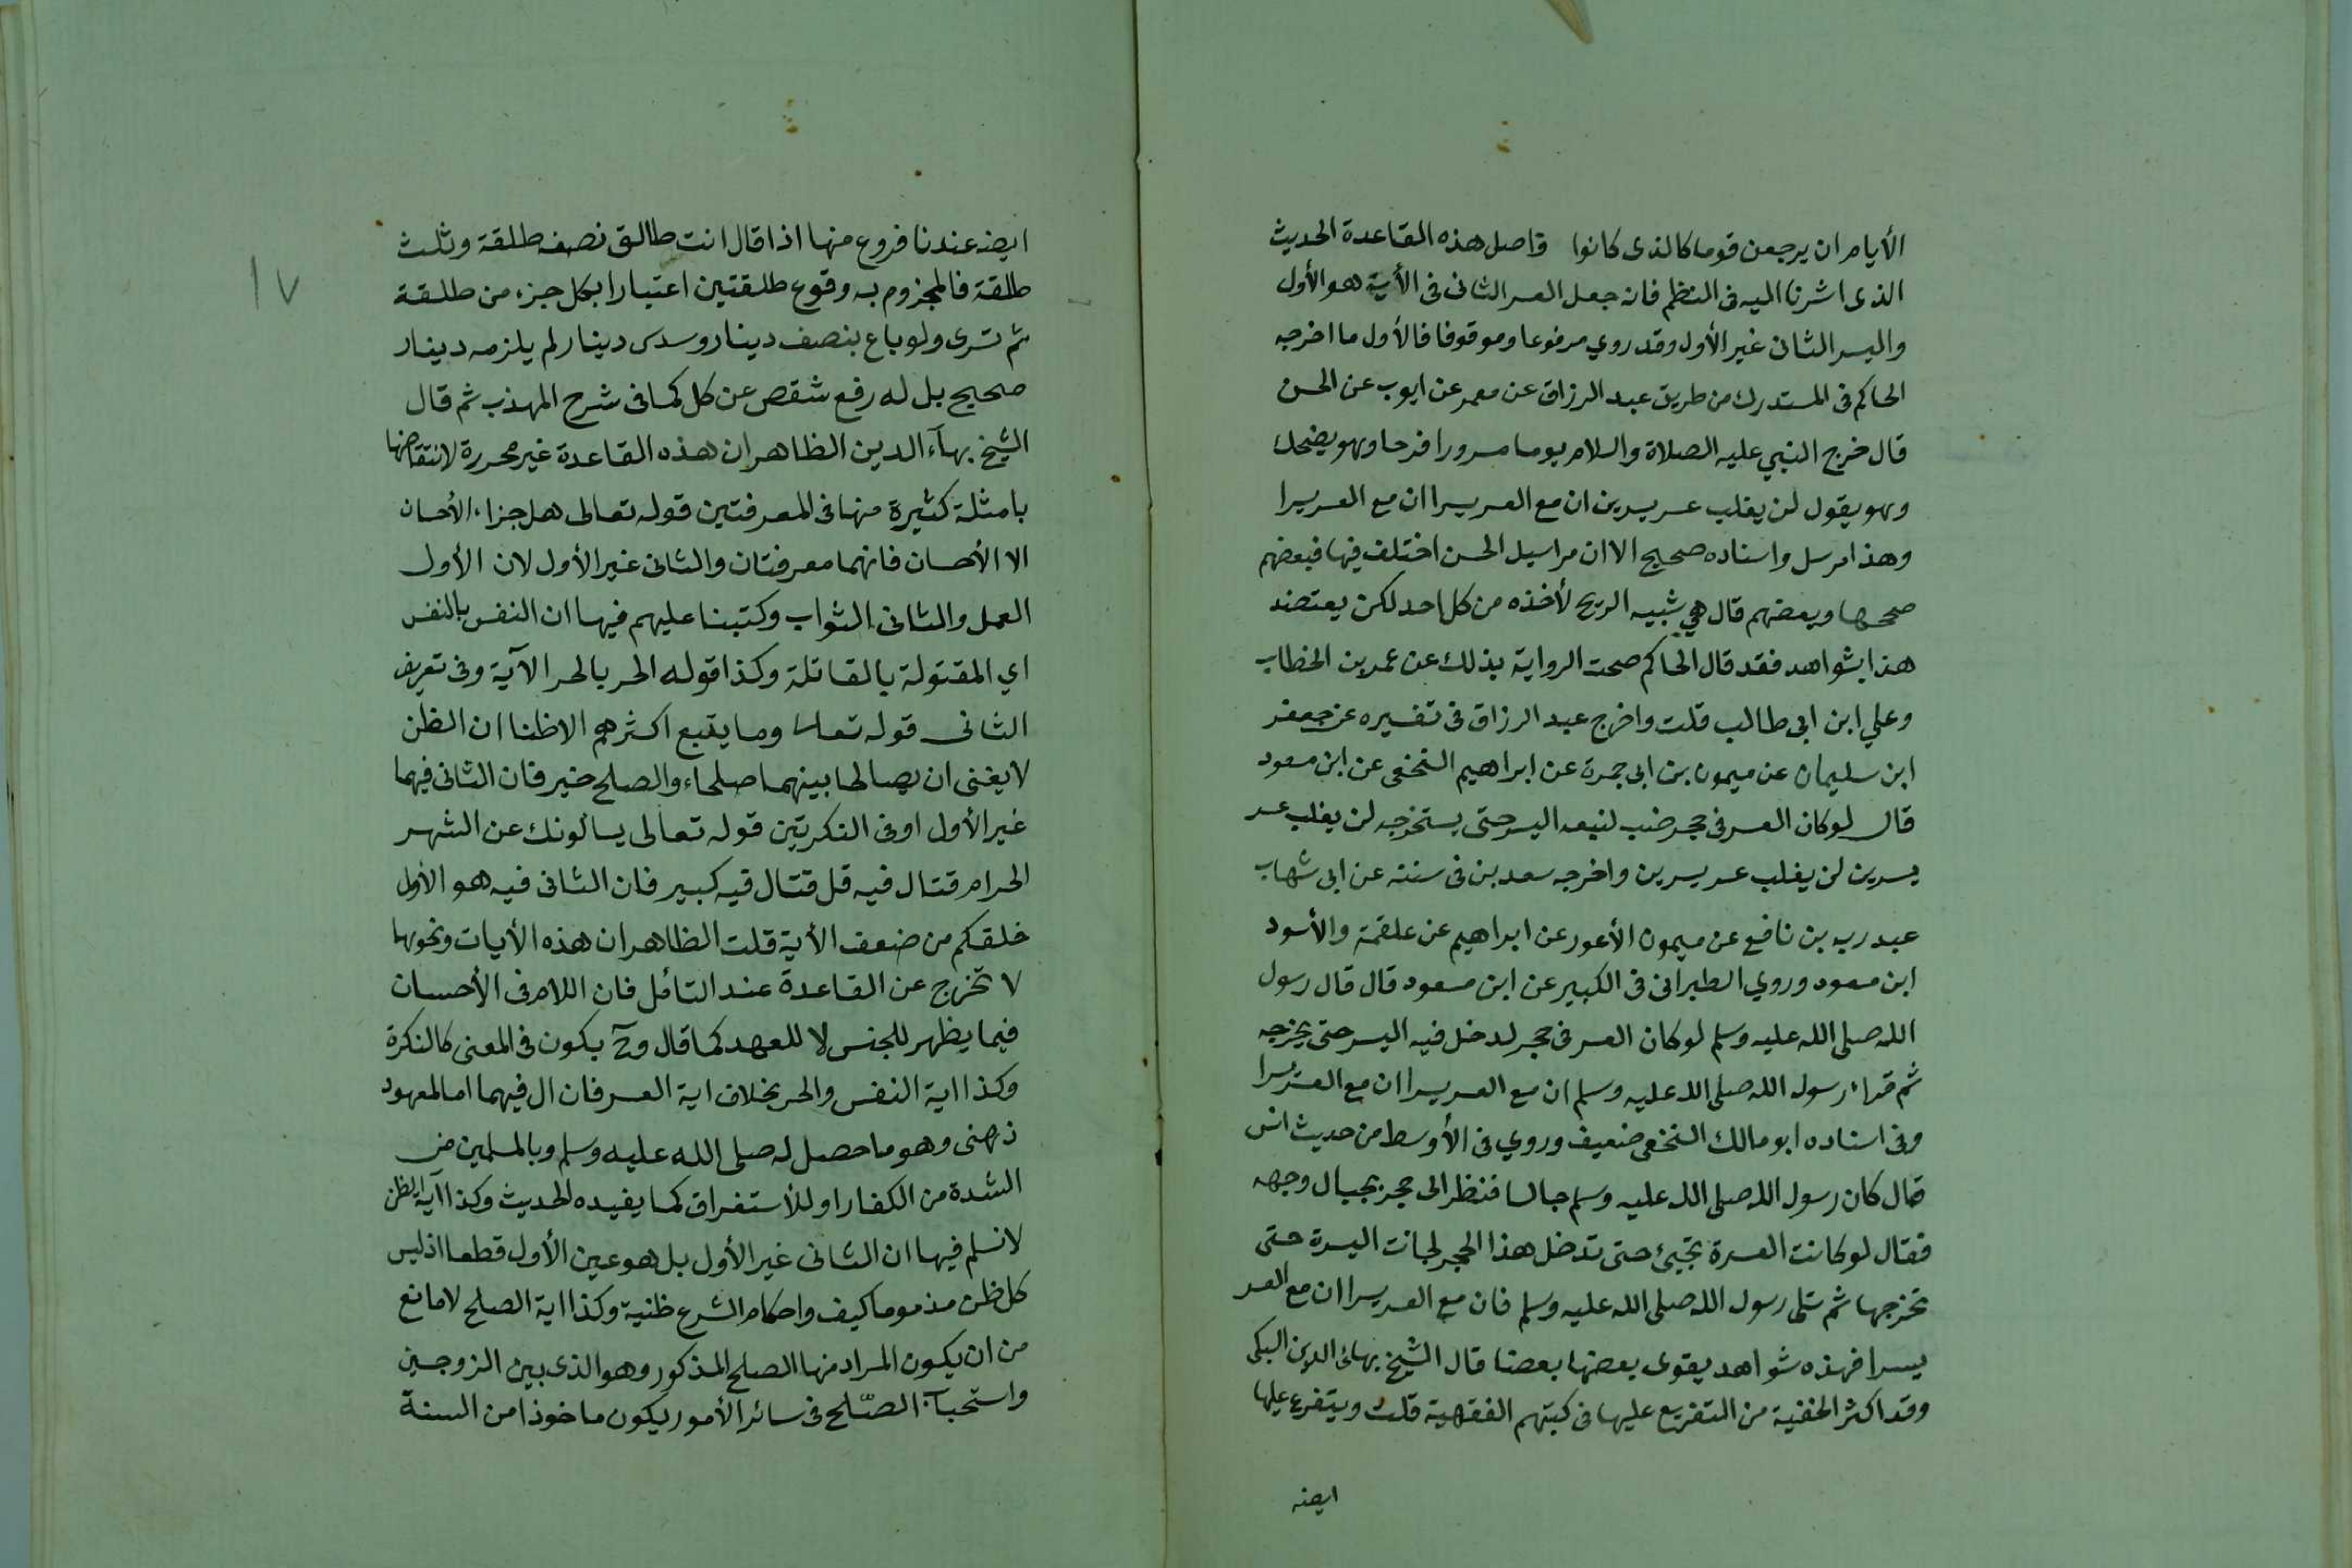 الأيام ان يرجعن قوما كالذى كانوا واصل هذه القاعدة الحديث
الذى اشرنا اليه فى النظم فانه جعل العسر الثانى فى الأية هو الأول
واليسر الثانى غير الأول وقد روي مرفوعا وموقوفا فالأول ما اخرجه
الحاكم فى المستدرك من طريق عبد الرزاق عن معمر عن ايوب عن الحسن
قال خرج النبي عليه الصلاة والسلام يوما مسرورا فرحا وهو يضحك
وهو يقول لن يغلب عسر يسرين ان مع العسر يسرا ان مع العسر يسرا
وهذا مرسل واسناده صحيح الا ان مراسيل الحسن اختلف فيها فبعضهم
صححها وبعضهم قال هي شبيه الريح لأخذه من كل احد لكن يعتضد
هذا بشواهد فقد قال الحاكم صحت الرواية بذلك عن عمر بن الخطاب
وعلي ابن ابى طالب قلت واخرج عبد الرزاق فى تفسيره عن جعفر
ابن سليمان عن ميمون بن ابى جمرة عن ابراهيم النخعى عن ابن مسعود
قال لو كان العسر فى حجر ضب لتبعه اليسر حتى يستخرجه لن يغلب عسر
يسرين لن يغلب عسر يسرين واخرجه سعد بن فى سننه عن ابى شهاب
عبد ربه بن نافع عن ميمون الأعور عن ابراهيم عن علقمة والأسود
ابن مسعود وروي الطبرانى فى الكبير عن ابن مسعود قال قال رسول
الله صلى الله عليه وسلم لو كان العسر فى حجر لدخل فيه اليسر حتى يخرجه
ثم قراء رسول الله صلى الله عليه وسلم ان مع العسر يسرا ان مع العسر يسرا
وفى اسناده ابو مالك النخعى ضعيف وروي فى الأوسط من حديث انس
قال كان رسول الله صلى الله عليه وسلم جالسا فنظر الى حجر بحيال وجهه
فقال لو كانت العسرة تجيئ حتى تدخل هذا الحجر لجائت اليسرة حتى
تخرجها ثم تلى رسول الله صلى الله عليه وسلم فان مع العسر يسرا ان مع العسر
يسرا فهذه شواهد يقوى بعضها بعضا قال الشيخ بهائ الدين السبكى
وقد اكثر الحنفية من التفريع عليها فى كتبهم الفقهية قلت ويتفرع عليها
ايضه
١٧
ايضه عندنا فروع منها اذا قال انت طالق نصف طلقة وثلث
طلقة فالمجزوم به وقوع طلقتين اعتبارا بكل جزء من طلقة
ثم تسرى ولو باع بنصف دينار وسدس دينار لم يلزمه دينار
صحيح بل له رفع شقص عن كل كما فى شرح المهذب ثم قال
الشيخ بهآء الدين الظاهر ان هذه القاعدة غير محررة لانتقاضها
بامثلة كثيرة منها فى المعرفتين قوله تعالى هل جزاء الأحسان
الا الأحسان فانهما معرفتان والثانى غير الأول لان الأول
العمل والثانى الثواب وكتبنا عليهم فيها ان النفس بالنفس
اي المقتولة بالقاتلة وكذا قوله الحر بالحر الآية وفى تعريف
الثانى قوله تعالى وما يتبع اكثرهم الا ظنا ان الظن
لا يغنى ان يصالحا بينهما صلحاء والصلح خير فان الثانى فيهما
غير الأول اوفى النكرتين قوله تعالى يسألونك عن الشهر
الحرام قتال فيه قل قتال فيه كبير فان الثانى فيه هو الأول
خلقكم من ضعف الأية قلت الظاهر ان هذه الأيات ونحوها
لا تخرج عن القاعدة عند التأمل فان اللام فى الأحسان
فيما يظهر للجنس لا للعهد كما قال وح يكون فى المعنى كالنكرة
وكذا اية النفس والحر بخلاف اية العسر فان ال فيهما اما لمعهود
ذهنى وهو ما حصل له صلى الله عليه وسلم وبالمسلمين من
الشدة من الكفار او للأستغراق كما يفيده الحديث وكذا آية الظن
لا نسلم فيها ان الثانى غير الأول بل هو عين الأول قطعا اذ ليس
كل ظن مذموما كيف واحكام الشرع ظنية وكذا اية الصلح لا مانع
من ان يكون المراد منها الصلح المذكور وهو الذى بين الزوجين
واستحبآب الصّلح فى سائر الأمور يكون ماخوذا من السنة